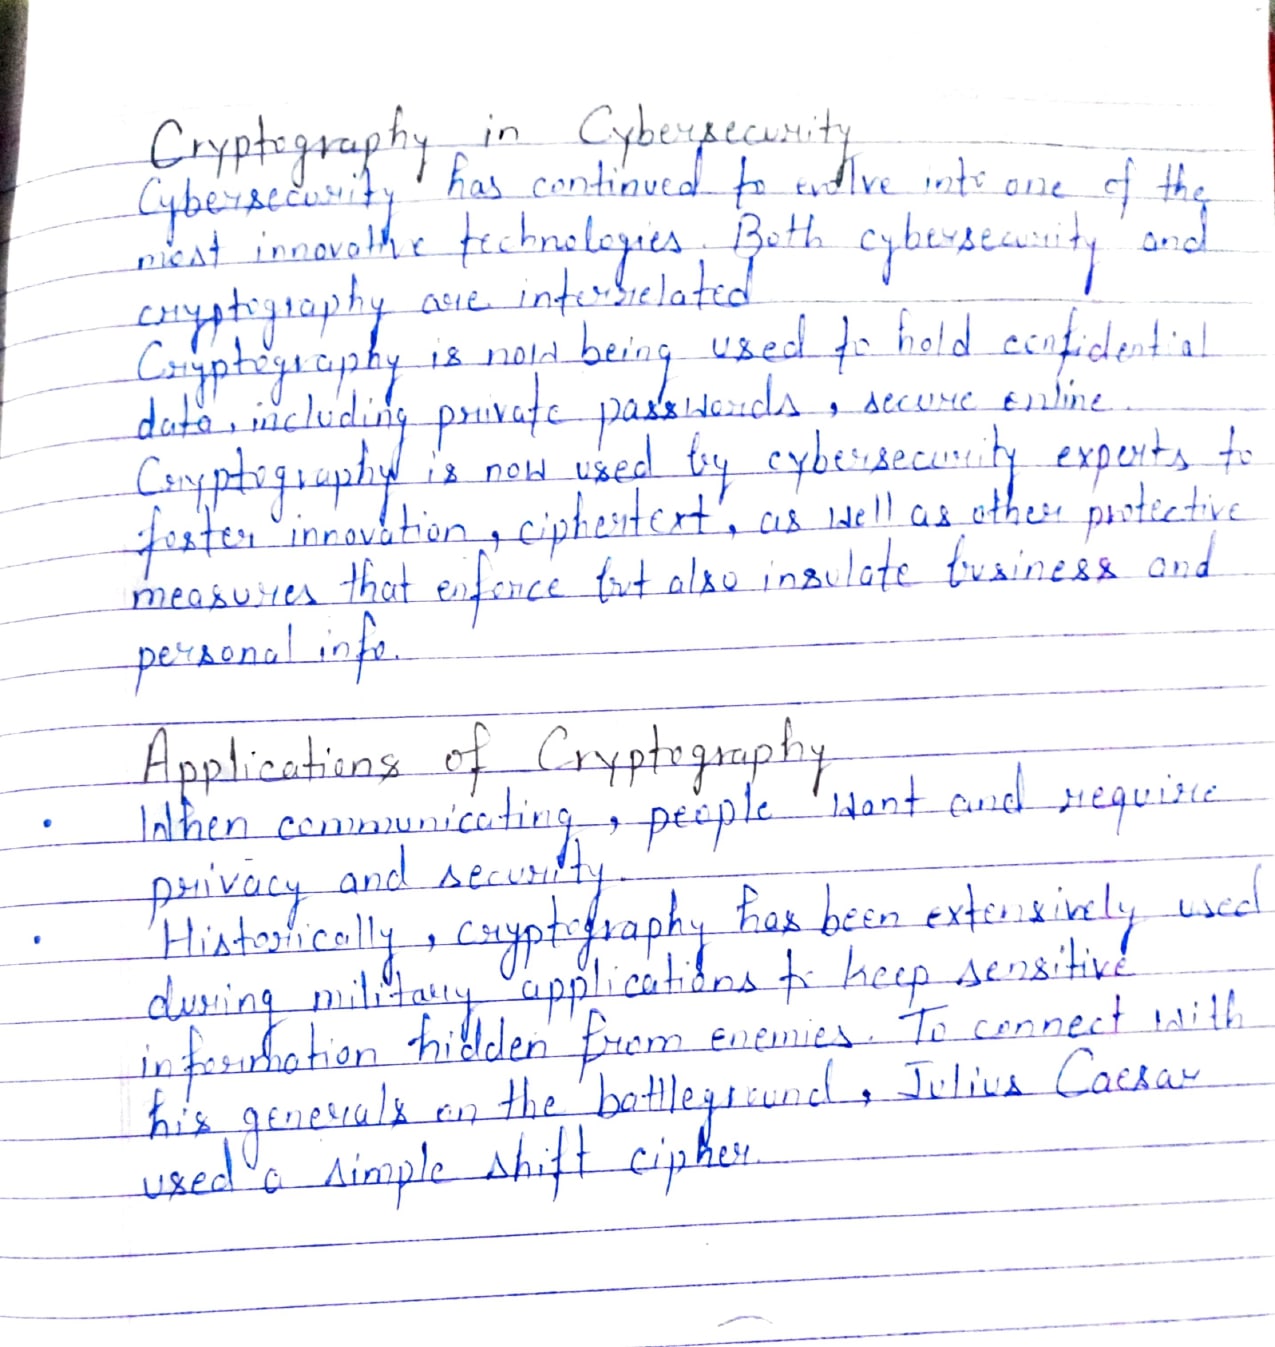 Cryptography in Cybersecurity
Cybersecurity has continued to evolve into one of the
most innovative technologies. Both cybersecurity and
cryptography are interrelated
Cryptography is now being used to hold confidential
data, including private passwords, secure online.
Cryptography is now used by cybersecurity experts to
foster innovation, ciphertext, as well as other protective
measures that enforce but also insulate business and
personal info.
Applications of Cryptography
• When communicating, people want and require
privacy and security.
• Historically, cryptography has been extensively used
during military applications to keep sensitive
information hidden from enemies. To connect with
his generals on the battleground, Julius Caesar
used a simple shift cipher.